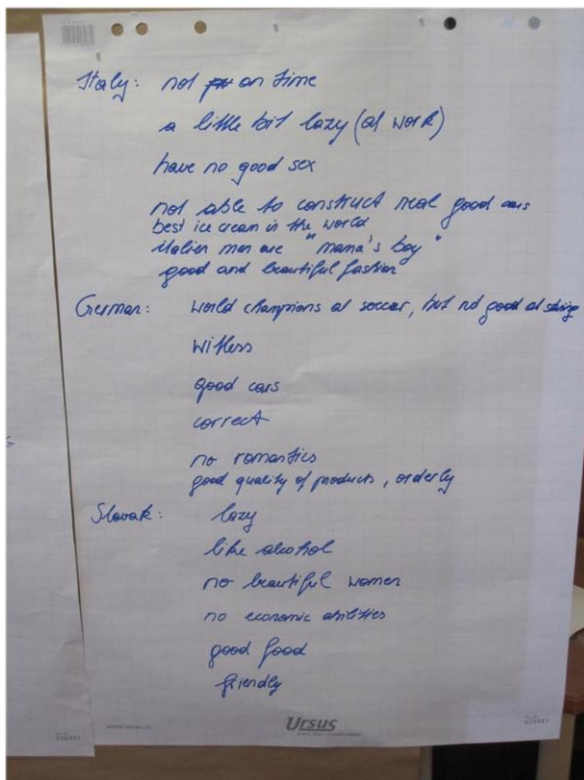 Italy: not on time
a little bit lazy (at work)
have no good sex
not able to construct real good cars
best ice cream in the world
italien men are "mama's boy"
good and beautiful fashion
German: World champions at soccer, but not good at skiing
witless
good cars
correct
no romantics
good quality of products, orderly
Slovak: lazy
like alcohol
no beautiful women
no economic abilities
good food
friendly
Ursus